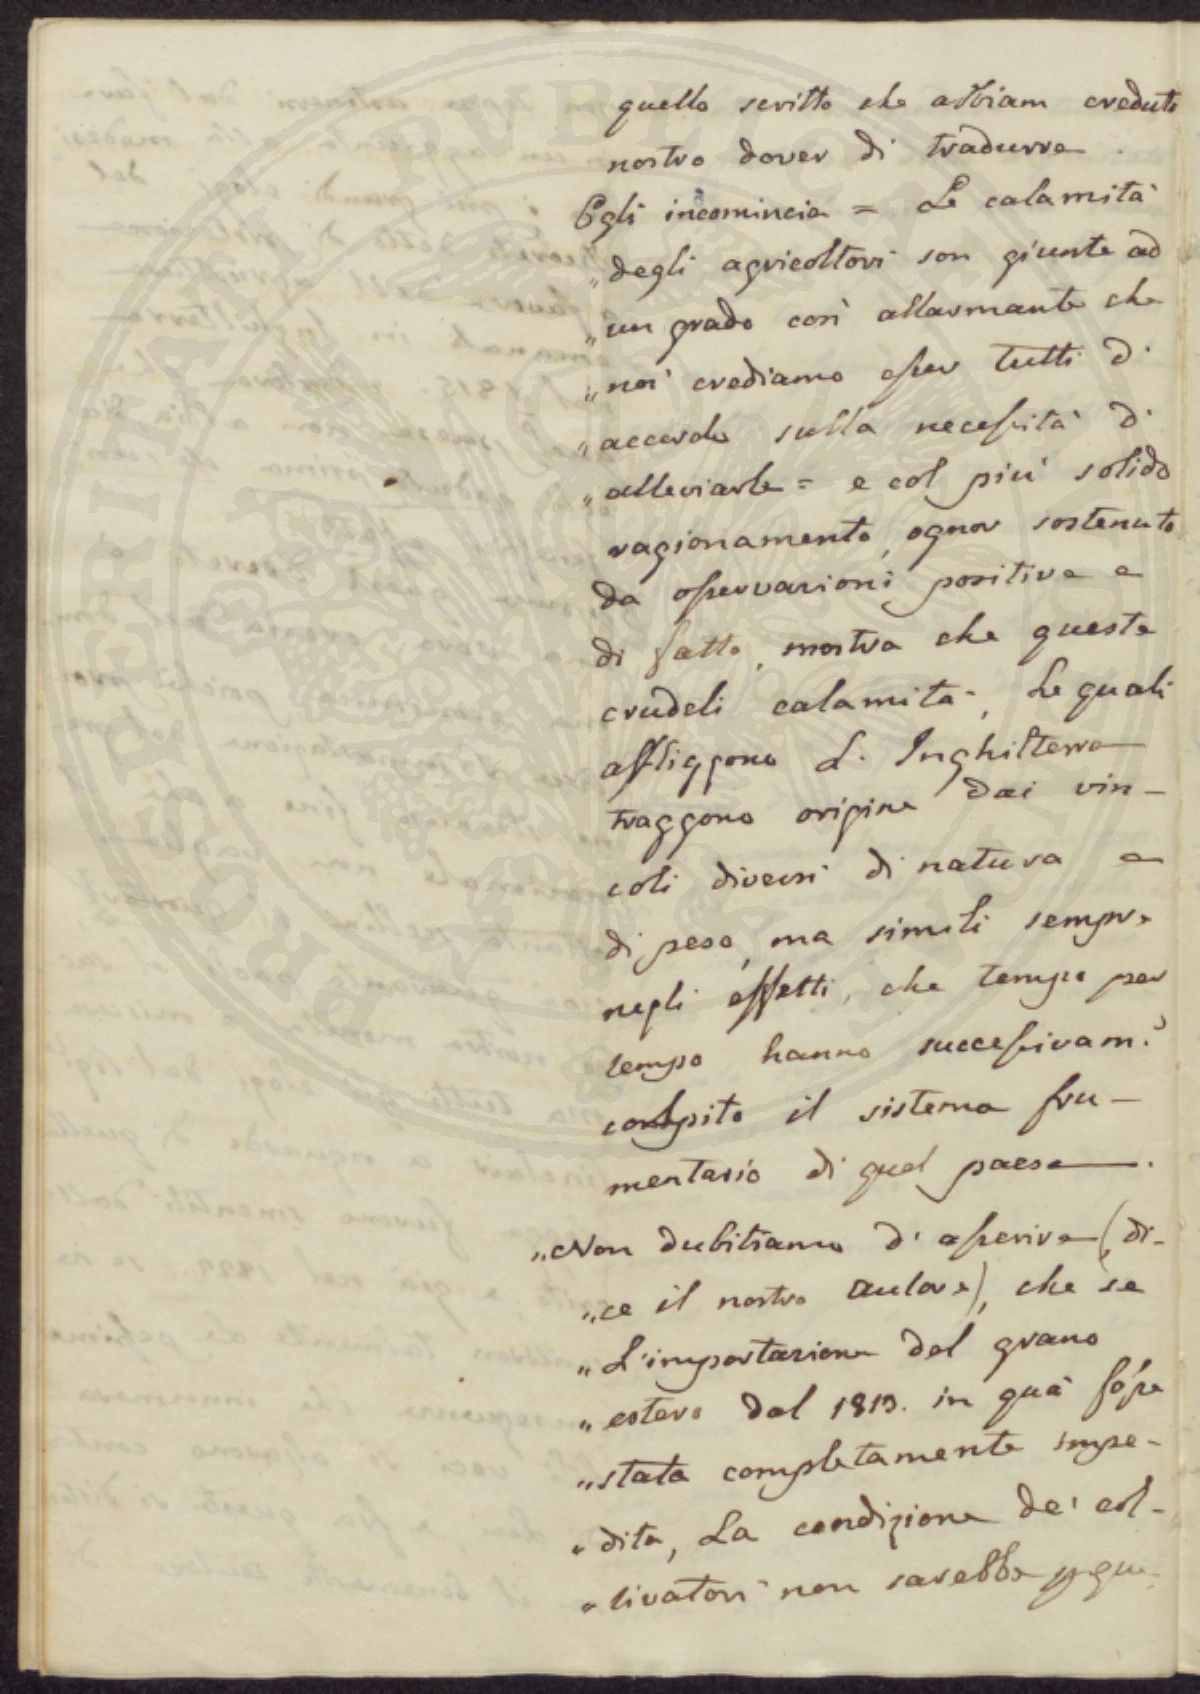 quello scritto che abbiam creduto
nostro dover di tradurre.
Egli incomincia = Le calamità
„degli agricoltori son giunte ad
„un grado così allarmante che
„noi crediamo esser tutti d'
„accordo sulla necessità d'
„alleviarle = e col più solido
ragionamento, ognor sostenuto
da osservazioni positive e
di fatto, mostra che queste
crudeli calamità, le quali
affliggono L'Inghilterra
traggono origine dai vin-
coli diversi di natura e
di peso, ma simili sempre
negli effetti, che tempo per
tempo hanno successivam.e
colpito il sistema fru-
mentario di quel paese.
„Non dubitiamo d'asserire (di-
„ce il nostro autore), che se
„L'importazione del grano
„estero dal 1813. in quà fosse
„stata completamente impe-
„dita, La condizione de' col-
„tivatori non sarebbe
PROSPERITATI PVBLICAE